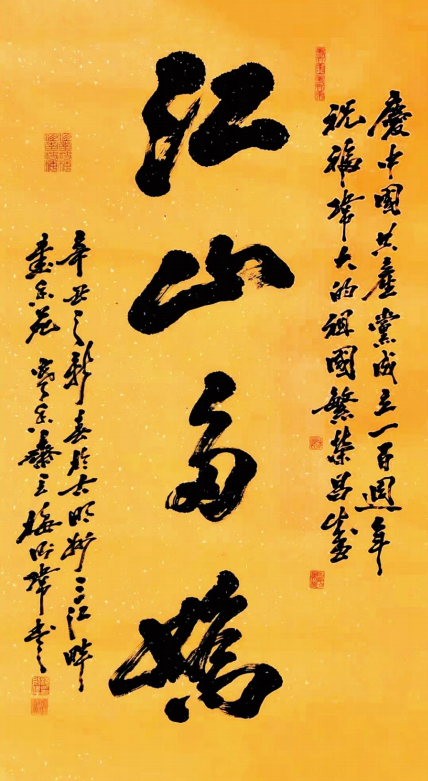 慶中國共產黨成立一百週年
祝福偉大的祖國繁榮昌盛
江山多嬌
辛丑之新春於古明州三江畔
樂苑 樂齋主梅 偉書